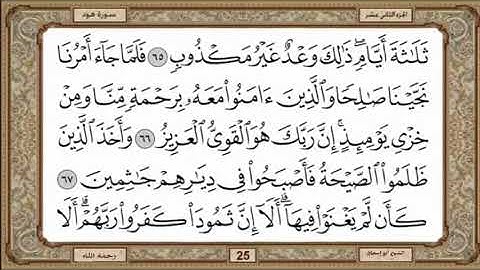 الجزء الثاني عشر
سورة هود
ثَلَٰثَةَ أَيَّامٍۖ ذَٰلِكَ وَعۡدٌ غَيۡرُ مَكۡذُوبٖ ٦٥ فَلَمَّا جَآءَ أَمۡرُنَا
نَجَّيۡنَا صَٰلِحٗا وَٱلَّذِينَ ءَامَنُواْ مَعَهُۥ بِرَحۡمَةٖ مِّنَّا وَمِنۡ
خِزۡيِ يَوۡمِئِذٍۚ إِنَّ رَبَّكَ هُوَ ٱلۡقَوِيُّ ٱلۡعَزِيزُ ٦٦ وَأَخَذَ ٱلَّذِينَ
ظَلَمُواْ ٱلصَّيۡحَةُ فَأَصۡبَحُواْ فِي دِيَٰرِهِمۡ جَٰثِمِينَ ٦٧
كَأَن لَّمۡ يَغۡنَوۡاْ فِيهَآۗ أَلَآ إِنَّ ثَمُودَاْ كَفَرُواْ رَبَّهُمۡۗ أَلَا
الشيخ أبو إسحاق
25
رحمه الله